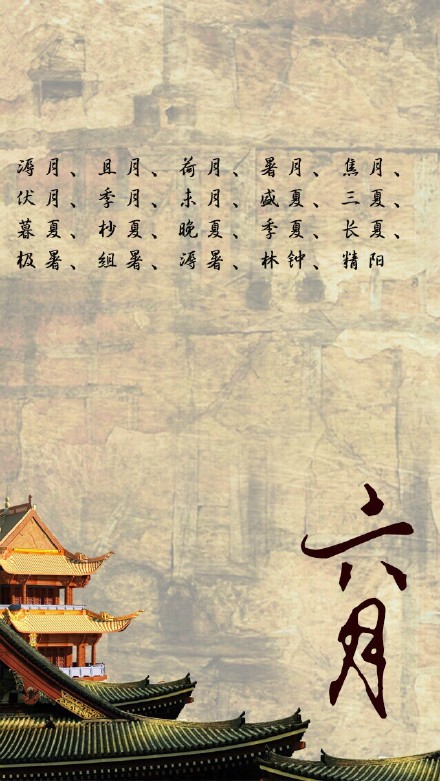 溽月、且月、荷月、暑月、焦月、
伏月、季月、未月、盛夏、三夏、
暮夏、杪夏、晚夏、季夏、长夏、
极暑、组暑、溽暑、林钟、精阳
六月